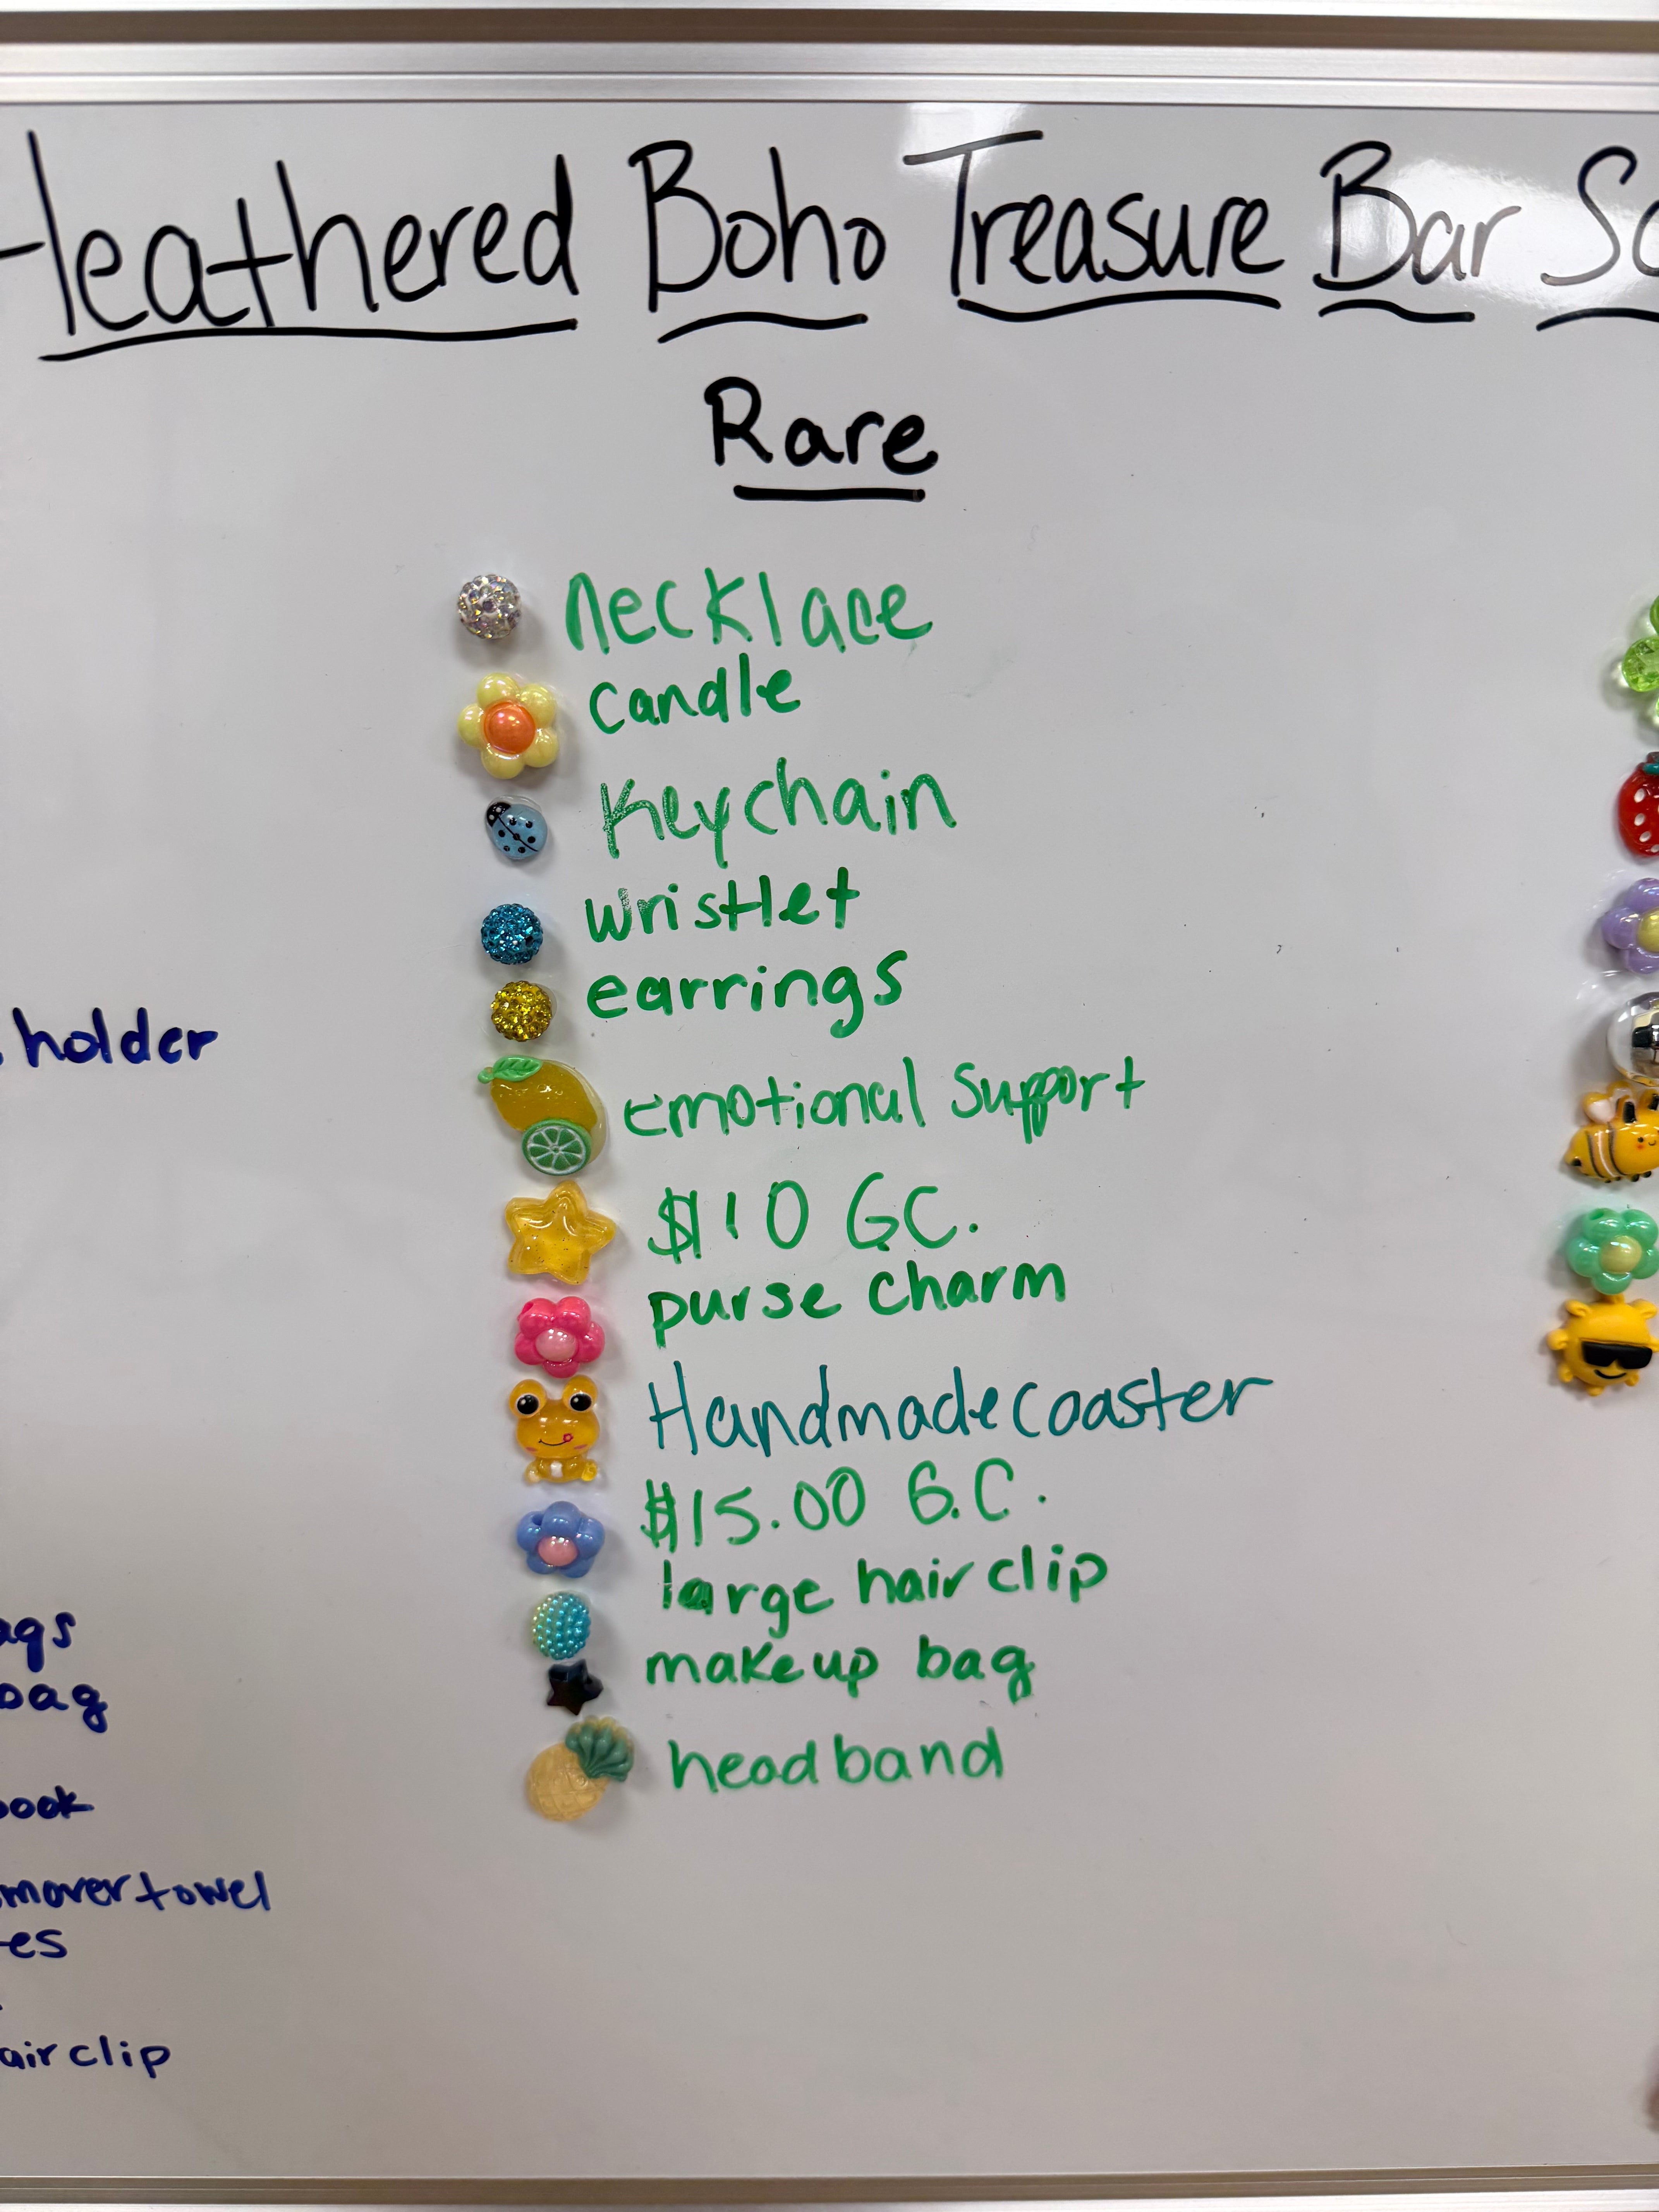 Heathered Boho Treasure Bar
Rare
necklace
candle
Keychain
wristlet
earrings
holder
emotional support
$10 GC.
purse charm
Handmade coaster
$15.00 G.C.
large hair clip
makeup bag
bag
headband
towel
clip